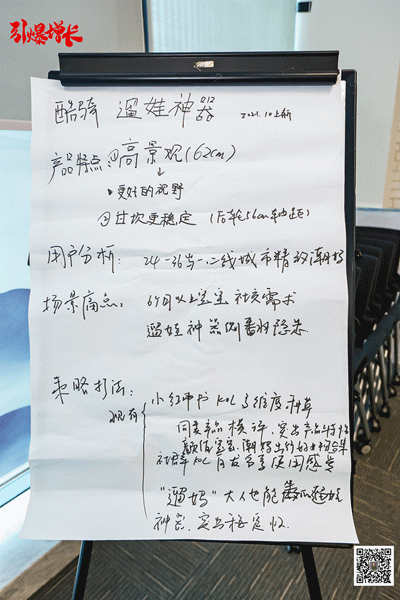 引爆增长
酷骑 遛娃神器 2021.10上新
产品特点:①高景观(62cm)
↓
•更好的视野
②过坎更稳定(后轮56cm轴距)
用户分析:24-36岁一二线城市精致潮妈
场景痛点:6个月以上宝宝社交需求
遛娃神器侧翻的隐患
策略打法:
现有
小红书KOL多维度种草
同类产品横评,突出产品
颜值宝宝、潮妈出行
社群KOC 分享使用感受
"遛妈"大人也能
神器,突出稳